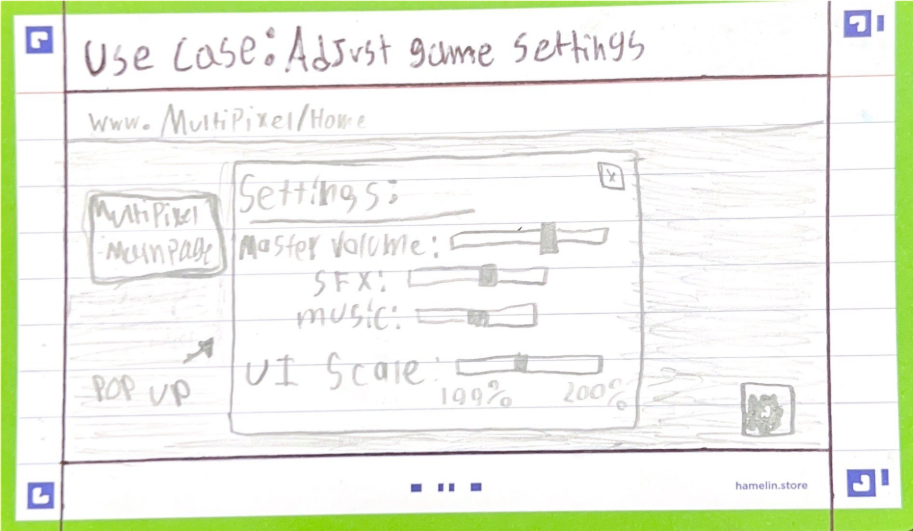 Use Case: Adjust game settings
www.MultiPixel/Home
Settings:
x
MultiPixel
Main Page
Master Volume:
SFX:
music:
UI Scale:
100% 200%
POP UP
hamelin.store